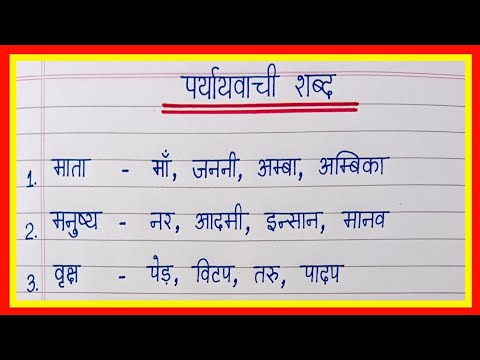 पर्यायवाची शब्द
1. माता - माँ, जननी, अम्बा, अम्बिका
2. मनुष्य - नर, आदमी, इन्सान, मानव
3. वृक्ष - पेड़, विटप, तरु, पादप